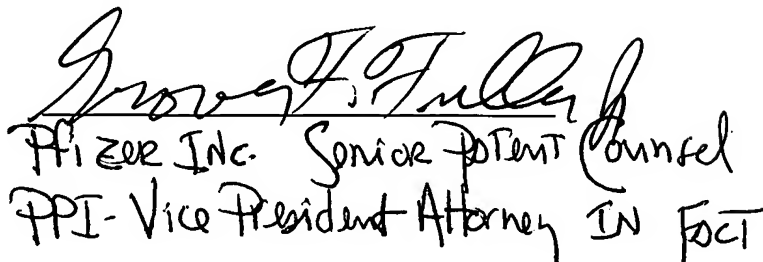 Grover F. Fuller Jr
Pfizer Inc. Senior Patent Counsel
PPI-Vice President Attorney IN FACT